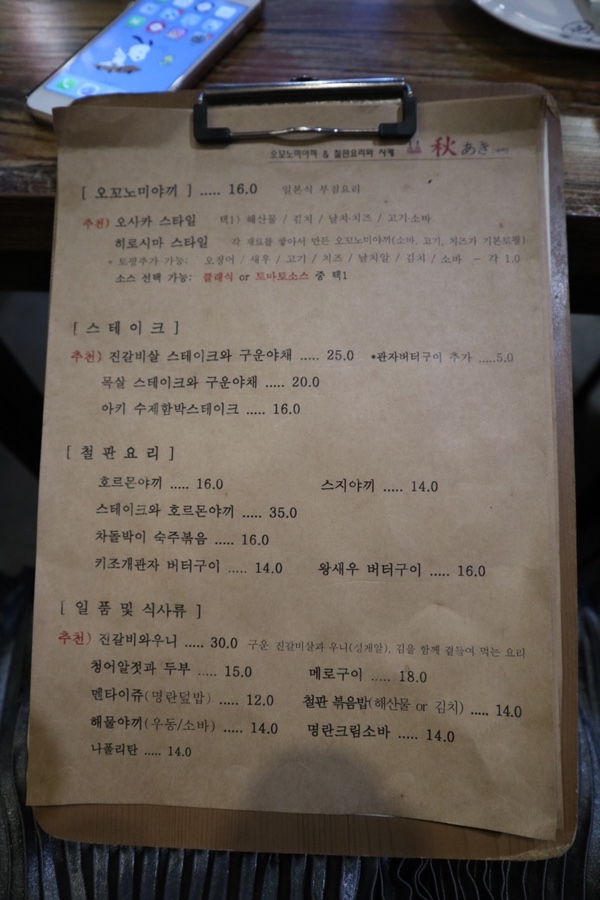 오꼬노미야끼 & 철판요리와 사케 秋 あき
[ 오꼬노미야끼 ] ..... 16.0 일본식 부침요리
추천) 오사카 스타일 택1) 해산물 / 김치 / 날치·치즈 / 고기·소바
히로시마 스타일 각 재료를 쌓아서 만든 오꼬노미야끼(소바, 고기, 치즈가 기본토핑)
* 토핑추가 가능: 오징어 / 새우 / 고기 / 치즈 / 날치알 / 김치 / 소바 - 각 1.0
소스 선택 가능: 클래식 or 토마토소스 중 택1
[ 스 테 이 크 ]
추천) 진갈비살 스테이크와 구운야채 ..... 25.0 *관자버터구이 추가 .....5.0
목살 스테이크와 구운야채 ..... 20.0
아키 수제함박스테이크 ..... 16.0
[ 철 판 요 리 ]
호르몬야끼 ..... 16.0 스지야끼 ..... 14.0
스테이크와 호르몬야끼 ..... 35.0
차돌박이 숙주볶음 ..... 16.0
키조개관자 버터구이 ..... 14.0 왕새우 버터구이 ..... 16.0
[ 일 품 및 식사류 ]
추천) 진갈비와우니 ..... 30.0 구운 진갈비살과 우니(성게알), 김을 함께 곁들여 먹는 요리
청어알젓과 두부 ..... 15.0 메로구이 ..... 18.0
멘타이쥬(명란덮밥) ..... 12.0 철판 볶음밥(해산물 or 김치) ..... 14.0
해물야끼(우동/소바) ..... 14.0 명란크림소바 ..... 14.0
나폴리탄 ..... 14.0